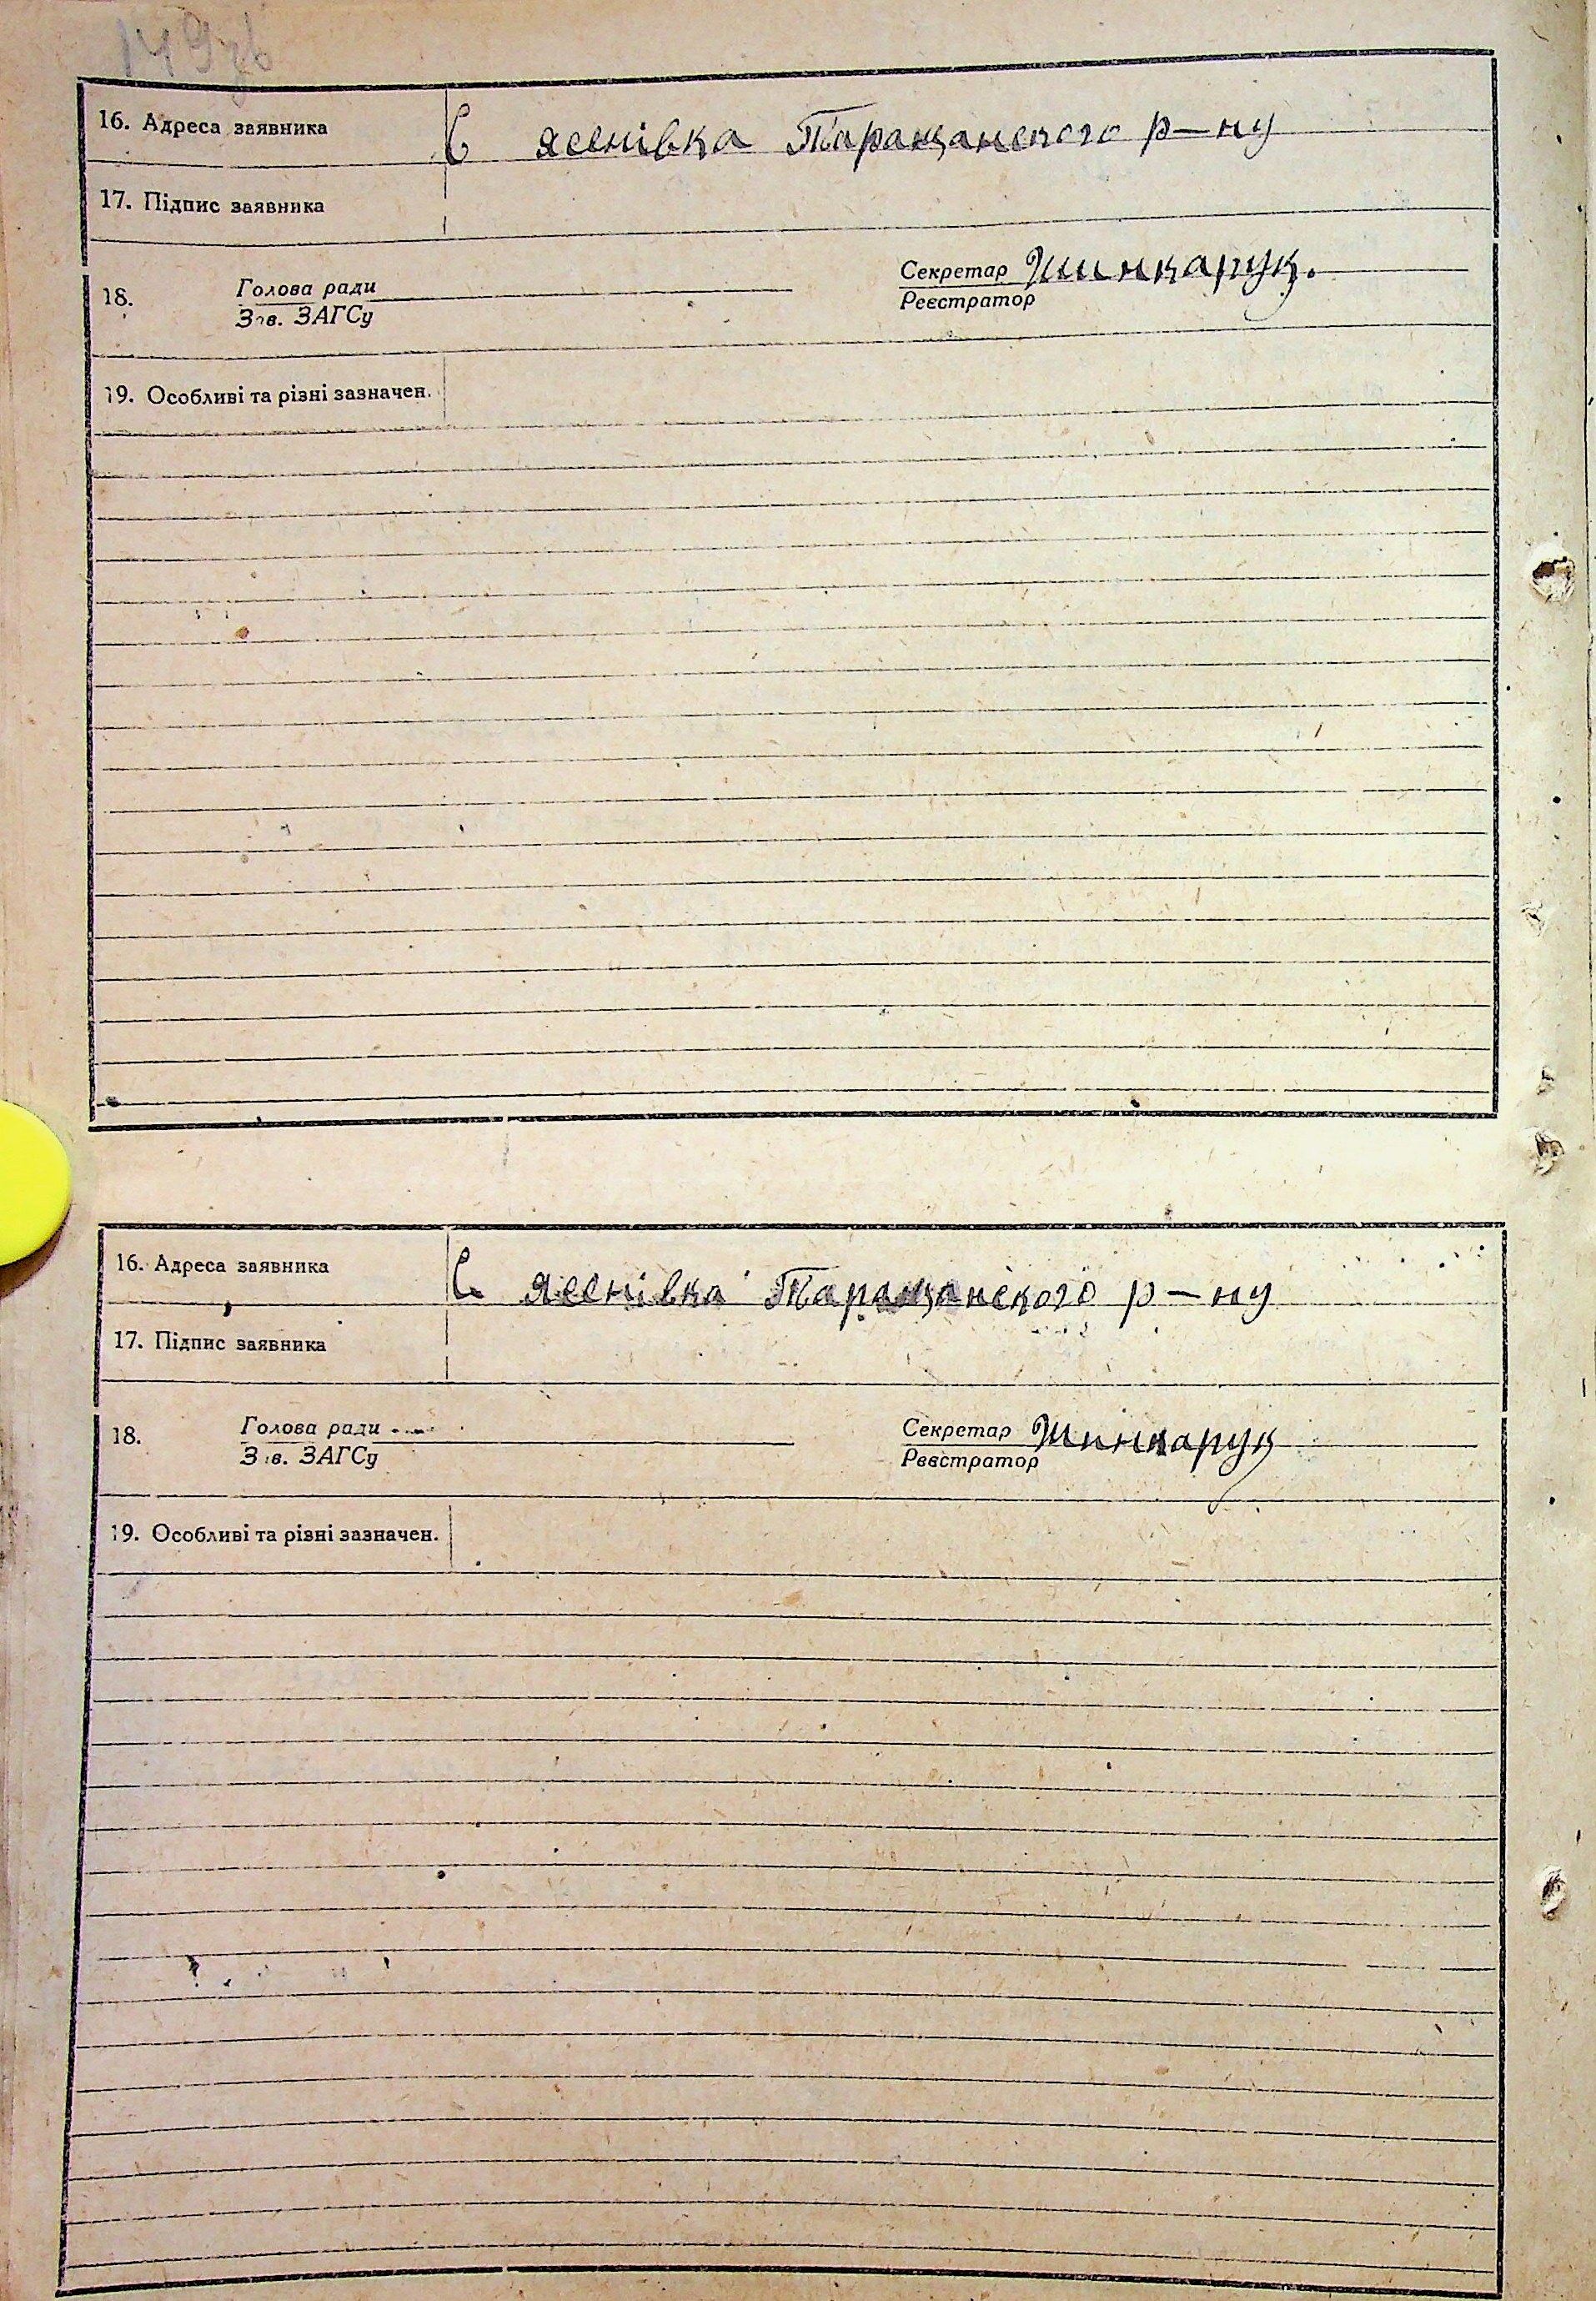 149зв
16. Адреса заявника С яснівка Таращанского р-ну
17. Підпис заявника
18. Голова ради Секретар Шинкарук.
Зав. ЗАГСу Реєстратор
19. Особливі та різні зазначен.
16. Адреса заявника С яснівка Таращанского р-ну
17. Підпис заявника
18. Голова ради Секретар Шинкарук
Зав. ЗАГСу Реєстратор
19. Особливі та різні зазначен.